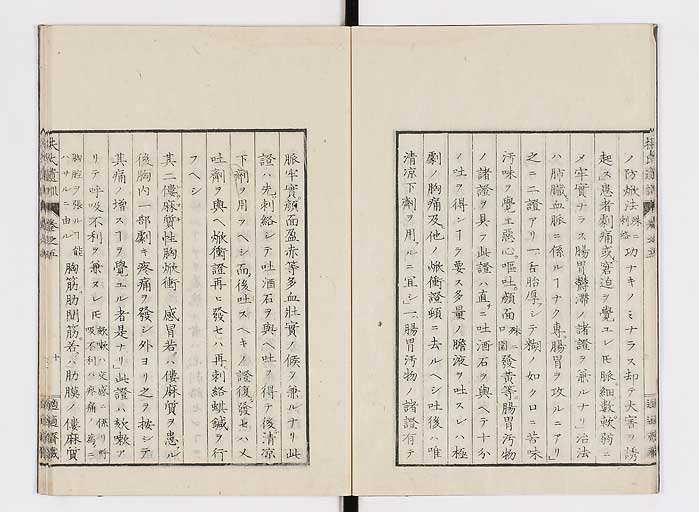 ノ防焮法殊ニ刺絡功ナキノミナラス却テ大害ヲ誘
起ス患者劇痛或窘迫ヲ覺ユレモ脈細數軟弱ニ
メ牢實ナラス腸胃欝滯ノ諸證ヲ兼ルナリ治法
ハ肺臓血脈ニ係ルヿナク專腸胃ヲ攻ルニアリ
之ニ二證アリ一舌胎厚クシテ糊ノ如ク口ニ苦味
汚味ヲ覺エ惡心嘔吐顔面殊ニ口圍發黄等腸胃汚物
ノ諸證ヲ具フ此證ハ直ニ吐酒石ヲ與ヘテ十分
ノ吐ヲ得ンヿヲ要ス多量ノ膽液ヲ吐スレハ極
劇ノ胸痛及他ノ焮衝證頓ニ去ルヘシ吐後ハ唯
清凉下劑ヲ用ルニ宜シ一腸胃汚物ノ諸證有テ
脈牢實顔面盈赤等多血壯實ノ候ヲ兼ルナリ此
證ハ先刺絡シテ吐酒石ヲ與ヘ吐ヲ得テ後清凉
下劑ヲ用フヘシ而後吐スヘキノ證復發セハ又
吐劑ヲ與ヘ焮衝證再ヒ發セハ再刺絡蜞鍼ヲ行
フヘシ
其二僂麻質性胸焮衝 感冒若ハ僂麻質ヲ患ル
後胸内一部劇キ疼痛ヲ發シ外ヨリ之ヲ按シテ
其痛ノ增スヿヲ覺ユル者是ナリ此證ハ欬嗽ア
リテ呼吸不利ヲ兼ヌレモ欬嗽ハ交感ニ係リ呼吸不利ハ疼痛ノ爲ニ
胸腔ヲ張ルヿ能ハサルニ由ル胸筋肋間筋若ハ肋膜ノ僂麻質